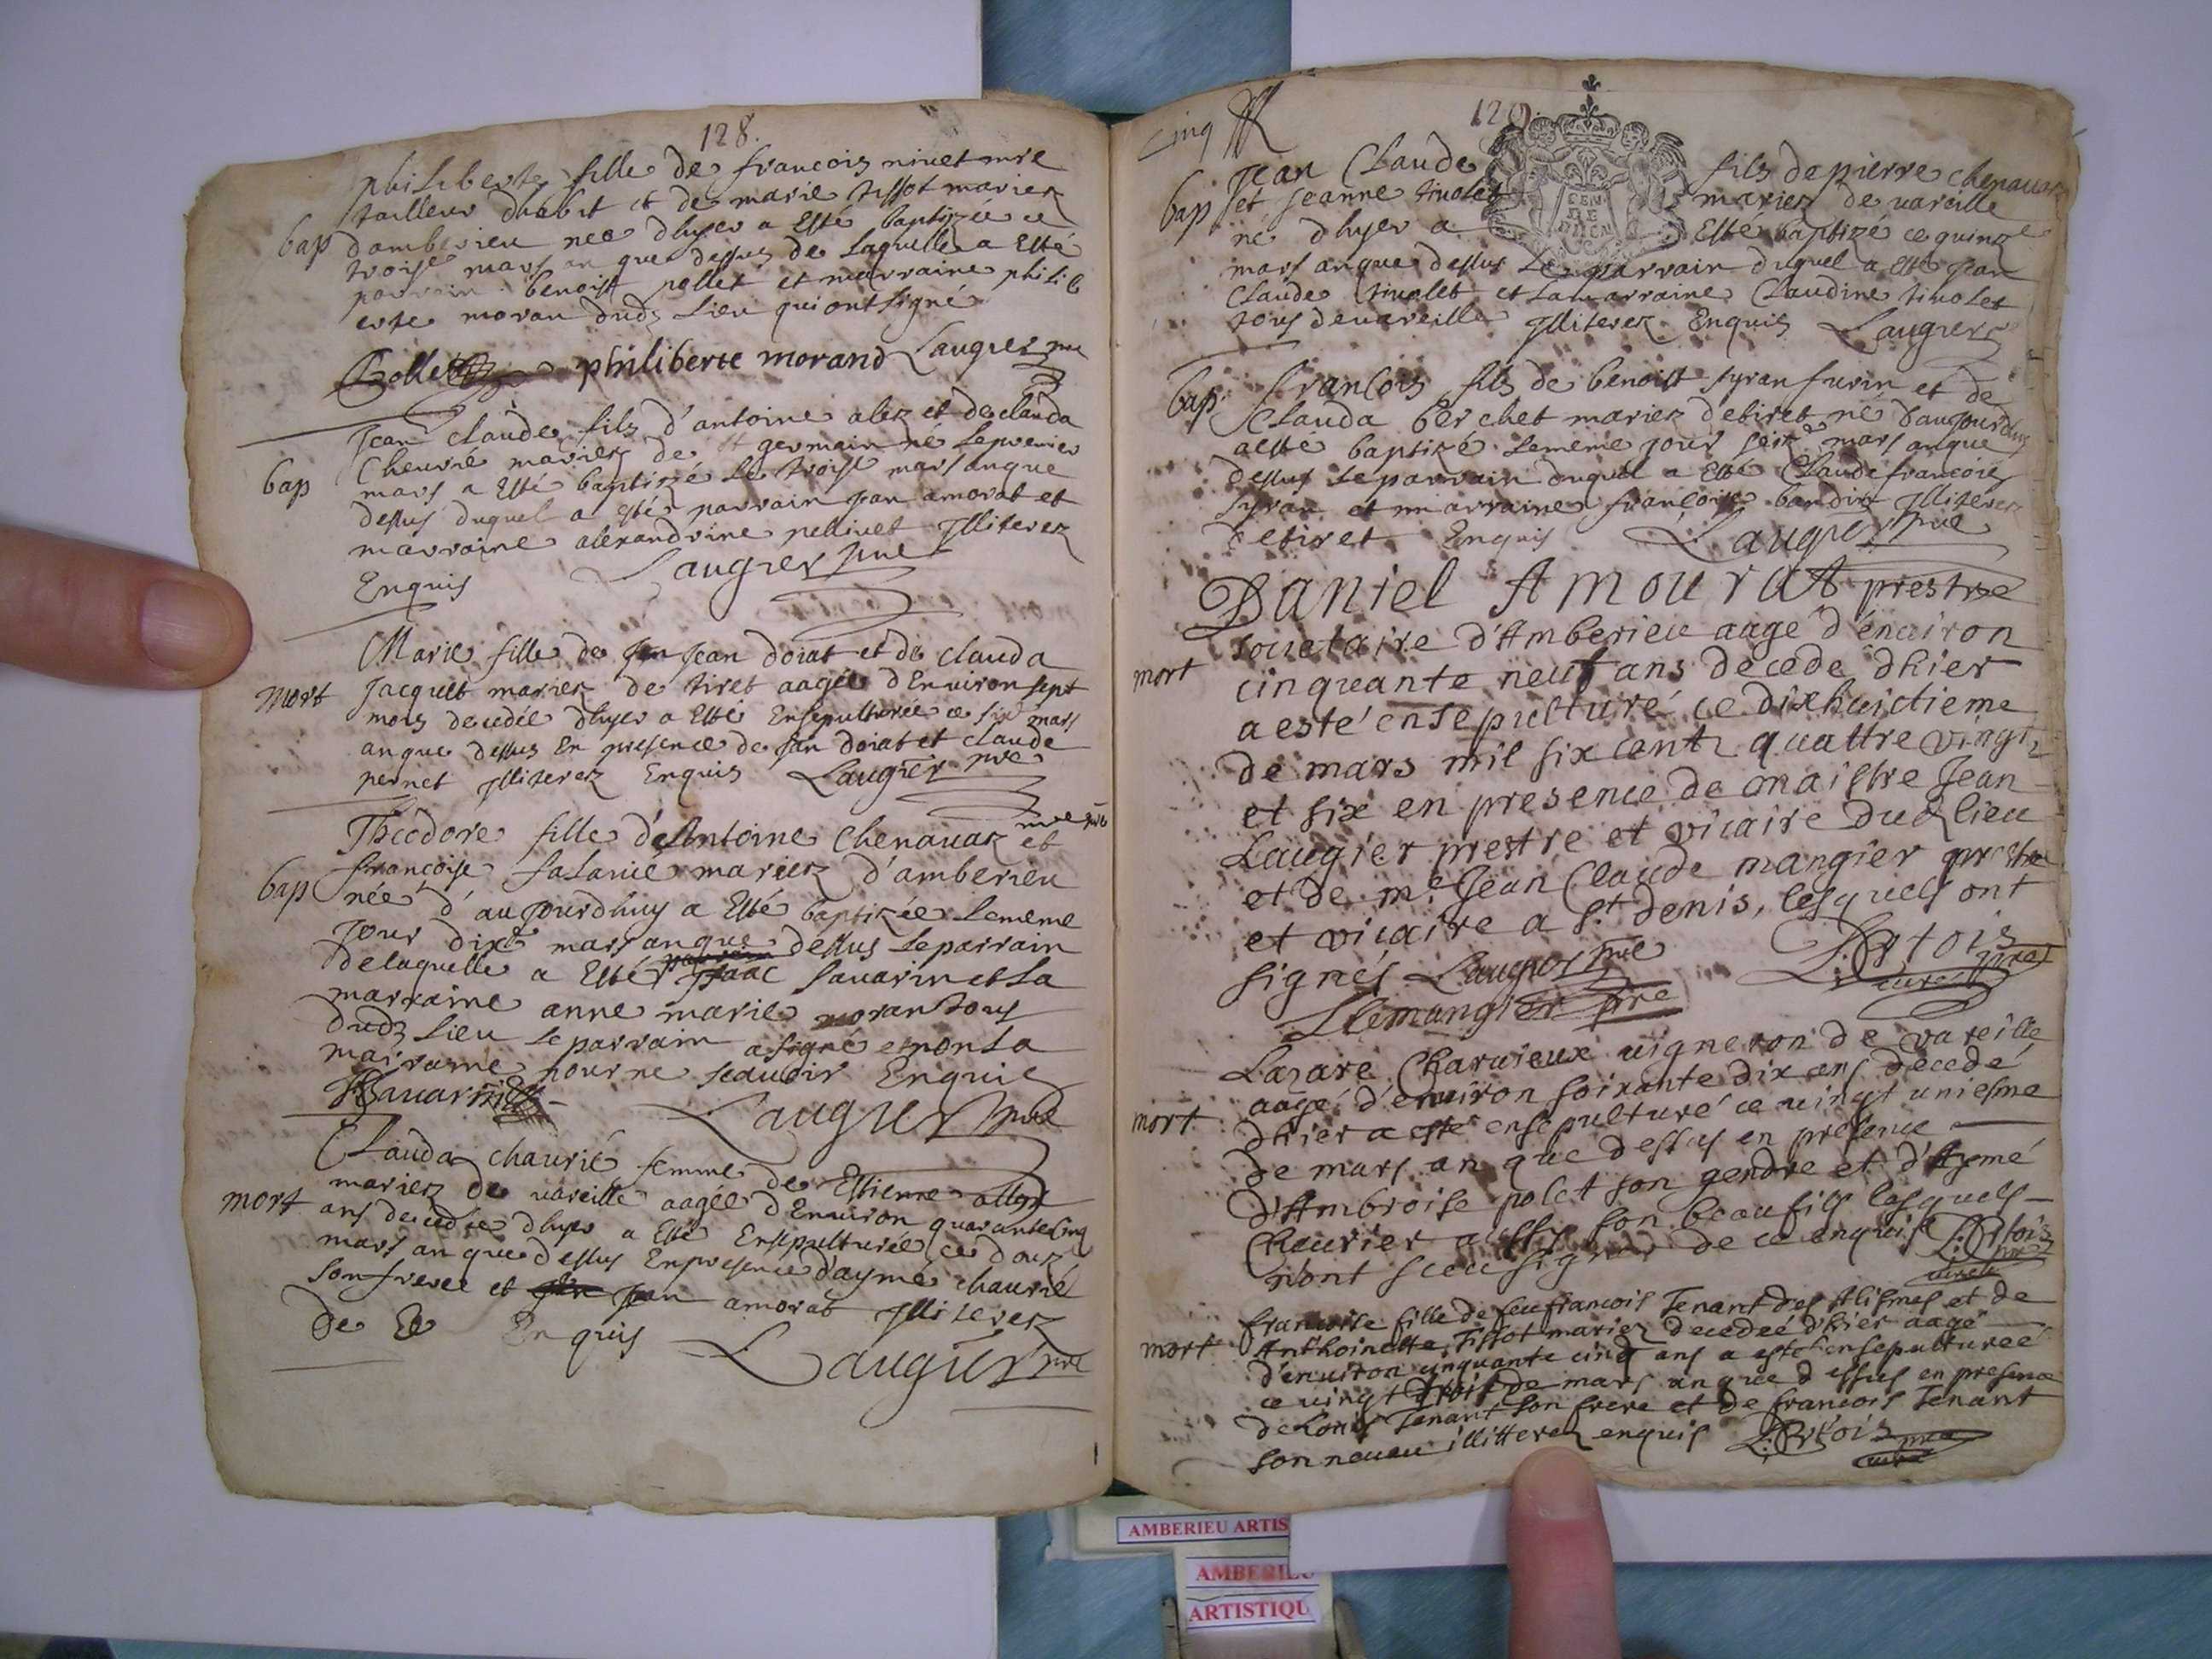 128.
philiberte fille de francois nivet mre
tailleur dhabit et de marie tissot mariez
bap damberieu nee dhyer a Esté baptizée ce
troise mars an que dessus de laquelle a Esté
parrain benoist pollet et marraine philib
erte moran dudz lieu qui ont signé
Pollet philiberte morand Laugier pre
Jean claude filz d'antoine alez et de clauda
Cheurié mariez de st germain né le premier
bap mars a Esté baptizé le troise mars an que
dessus duquel a esté parrain jean amorat et
marraine alexandrine pellivet Illiterez
Enquis Laugier pre
Marie fille de feu Jean doiat et de clauda
mort Jacquet mariez de tiret aagée d'Environ sept
mois decedée dhyer a Esté Ensepulturée ce six mars
an que dessus En presence de Jean doiat et claude
pernet Illiterez Enquis Laugier pre
Theodore fille d'Antoine Chenavaz et
françoise salanié mariez d'amberieu
bap née d'aujourdhuy a Esté baptizée le meme
jour dixe mars an que dessus le parrain
de laquelle a Esté Isaac Savarin et la
marraine anne marie moran tous
dudz lieu le parrain a signé et non la
marraine pour ne scauoir Enquis
ISavarin Laugier pre
Clauda chaurié femme de Estienne
mariez de vareille aagée d'Environ quarante cinq
mort ans decedée dhyer a Esté Ensepulturée ce douz
mars an que dessus En presence d'aymé chaurié
son frere et jean amorat Illiterez
de Ce Enquis Laugier pre
cinq
129.
Jean Claude filz de pierre chenavaz
bap et Jeanne tivolet mariez de vareille
né dhyer a Esté baptizé ce quinze
mars an que dessus Le parrain duquel a esté Jean
Claude tivolet et la marraine Claudine tivolet
tous de vareille Illiterez Enquis Laugier
bap francois filz de benoist syran furin et de
Clauda berchet mariez de tiret né d'aujourdhuy
a esté baptizé le meme jour seize mars an que
dessus le parrain duquel a Esté Claude francois
syran et marraine francoise baudin Illiterez
de tiret Enquis Laugier pre
Daniel Amourat prestre
societaire d'Amberieu aagé d'enuiron
mort cinquante neuf ans decede dhier
a esté ensepulturé ce dixhuictieme
de mars mil six centz quattre vingtz
et six en presence de maistre Jean
Laugier prestre et vicaire dudz lieu
et de me Jean Claude mangier prestre
et vicaire a st denis, lesquels ont
signés Laugier pre
mangier pre
Lazare Charvieux vigneron de vareille
aagé d'enuiron soixante dix ans décedé
mort dhier a esté ensepulturé ce vingt uniesme
de mars an que dessus en presence
d'Ambroise polet son gendre et d'Aymé
Cheurier aussy son beau fils lesquels
n'ont sceu signer de ce enquis
francoise fille de feu francois Tenant des Alismes et de
mort Anthoinette Tissot mariez decedée d'hier aagé
d'enuiron cinquante cinq ans a esté ensepulturée
ce vingt trois de mars an que dessus en presence
de Louis Tenant son frere et de francois Tenant
son neveu illitterez enquis
AMBERIEU ARTIS
AMBERIEU
ARTISTIQU